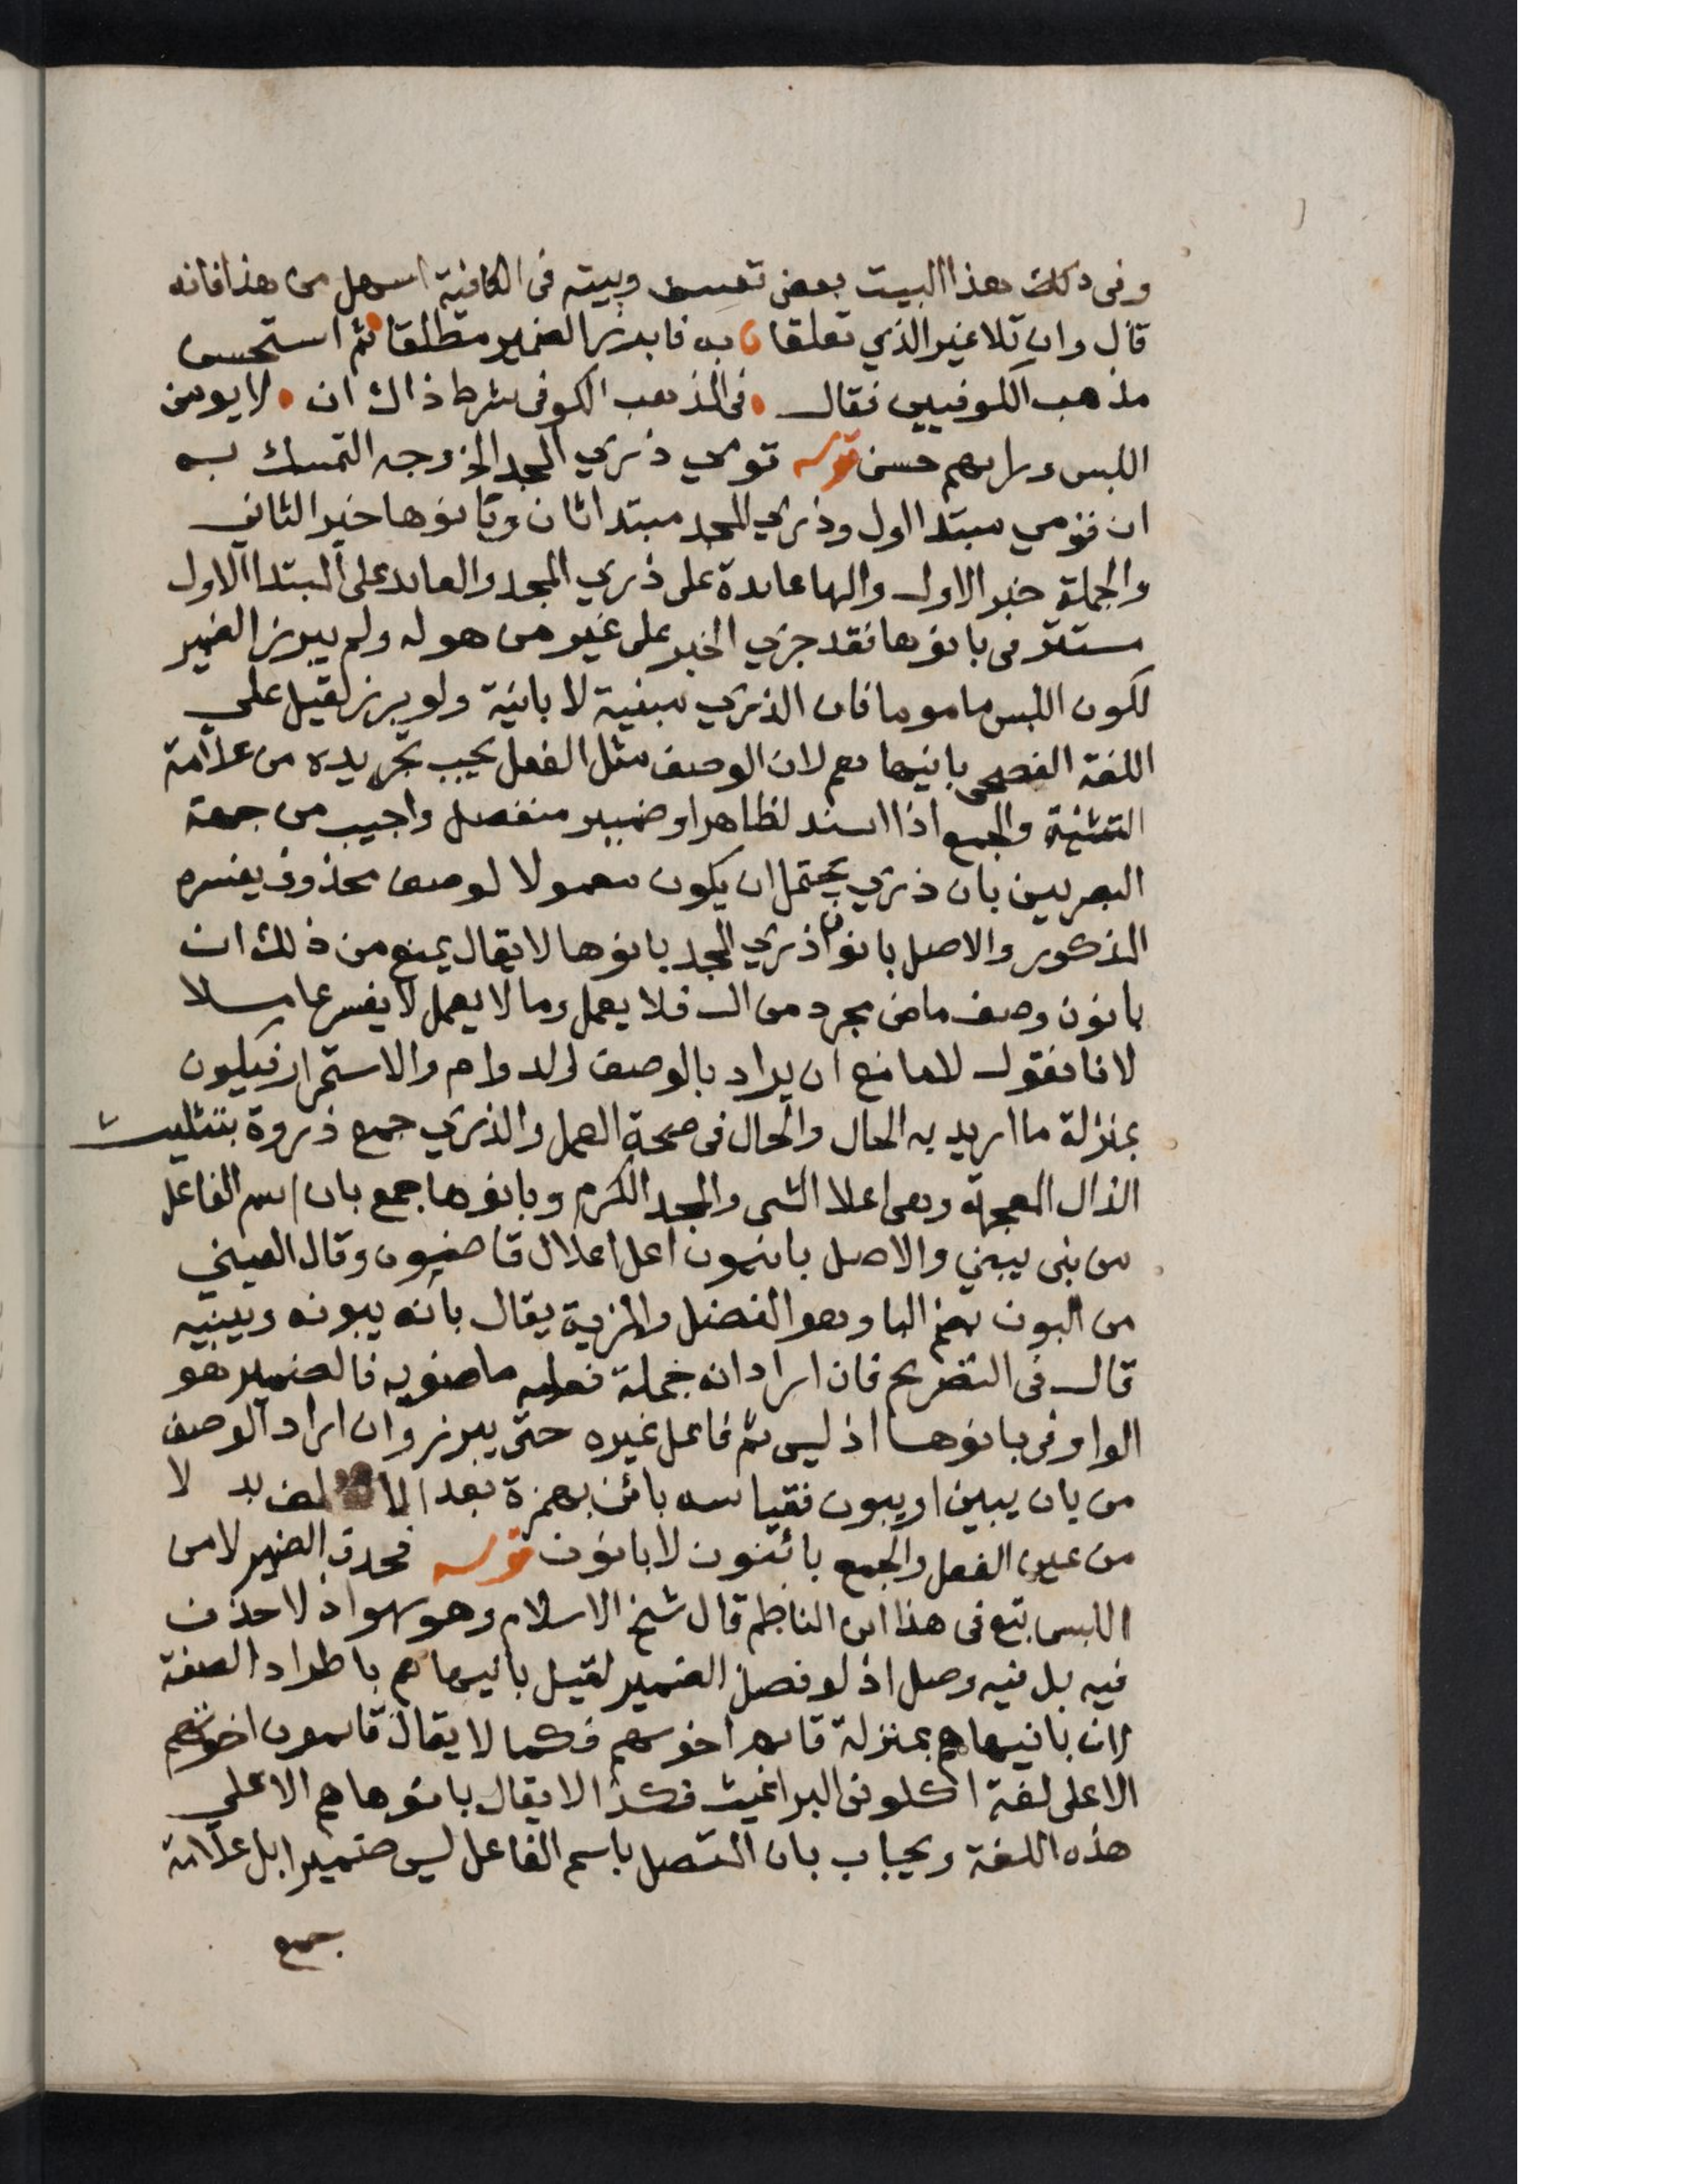 وفى دكلف هذا البيت بعض تعسف وبيته فى الكافية اسهل من هذا فانه
قال وان تلا غير الذي تعلقا به فابرز الضمير مطلقا ثم استحسن
مذهب الكوفيين فقال فى المذهب الكوفى شرط ذاك ان لا يومن
اللبس ورايهم حسن قوله قومي ذري المجد الخ وجه التمسك به
ان قومي مبتدا اول وذري المجد مبتدا ثان وبانوها خبر الثانى
والجملة خبر الاول والها عايدة على ذري المجد والعايد على المبتدا الاول
مستتر فى بانوها فقد جري الخبر على غير من هو له ولم يبرز الضمير
لكون اللبس مامونا فان الذري مبنية لا بانية ولو برز لقيل على
اللغة الفصحى بانيها هم لان الوصف مثل الفعل يجب تجريده من علامة
التثنية والجمع اذا اسند لظاهر او ضمير منفصل واجيب من جهة
البصريين بان ذري يحتمل ان يكون معمولا لوصف محذوف يفسره
المذكور والاصل بانوا ذري المجد بانوها لا يقال يمنع من ذلك ان
بانون وصف ماض مجرد من ال فلا يعمل وما لا يعمل لا يفسر عاملا
لانا نقول لا مانع ان يراد بالوصف الدوام والاستمرار فيكون
بمنزلة ما اريد به الحال والحال فى صحة العمل والذري جمع ذروة بتثليث
الذال المعجمة وهى اعلا الشى والمجد الكرم وبانوها جمع بان اسم الفاعل
من بنى يبني والاصل بانيون اعل اعلال قاضيون وقال العيني
من البون بضم البا وهو الفضل والمزية يقال بانه يبونه ويبينه
قال فى التصريح فان اراد انه جملة فعليه ماضويه فالضمير هو
الواو فى بانوها اذ ليس ثم فاعل غيره حتى يبرز وان اراد الوصف
من بان يبين او يبون فقياسه بائن بهمزة بعد الالف بد لا
من عين الفعل والجمع بائنون لا بانون قوله فحذف الضمير لامن
اللبس تبع فى هذا ابن الناظم قال شيخ الاسلام وهو سهو اذ لا حذف
فيه بل فيه وصل اذ لو فصل الضمير لقيل بانيها هم باطراد الصفة
لان بانيها هم بمنزلة قايم اخوتهم فكما لا يقال قايمون اخوتهم
الا على لغة اكلونى البراغيث فكذا لا يقال بانوها هم الا على
هذه اللغة ويجاب بان المتصل باسم الفاعل ليس ضميرا بل علامة
جمع